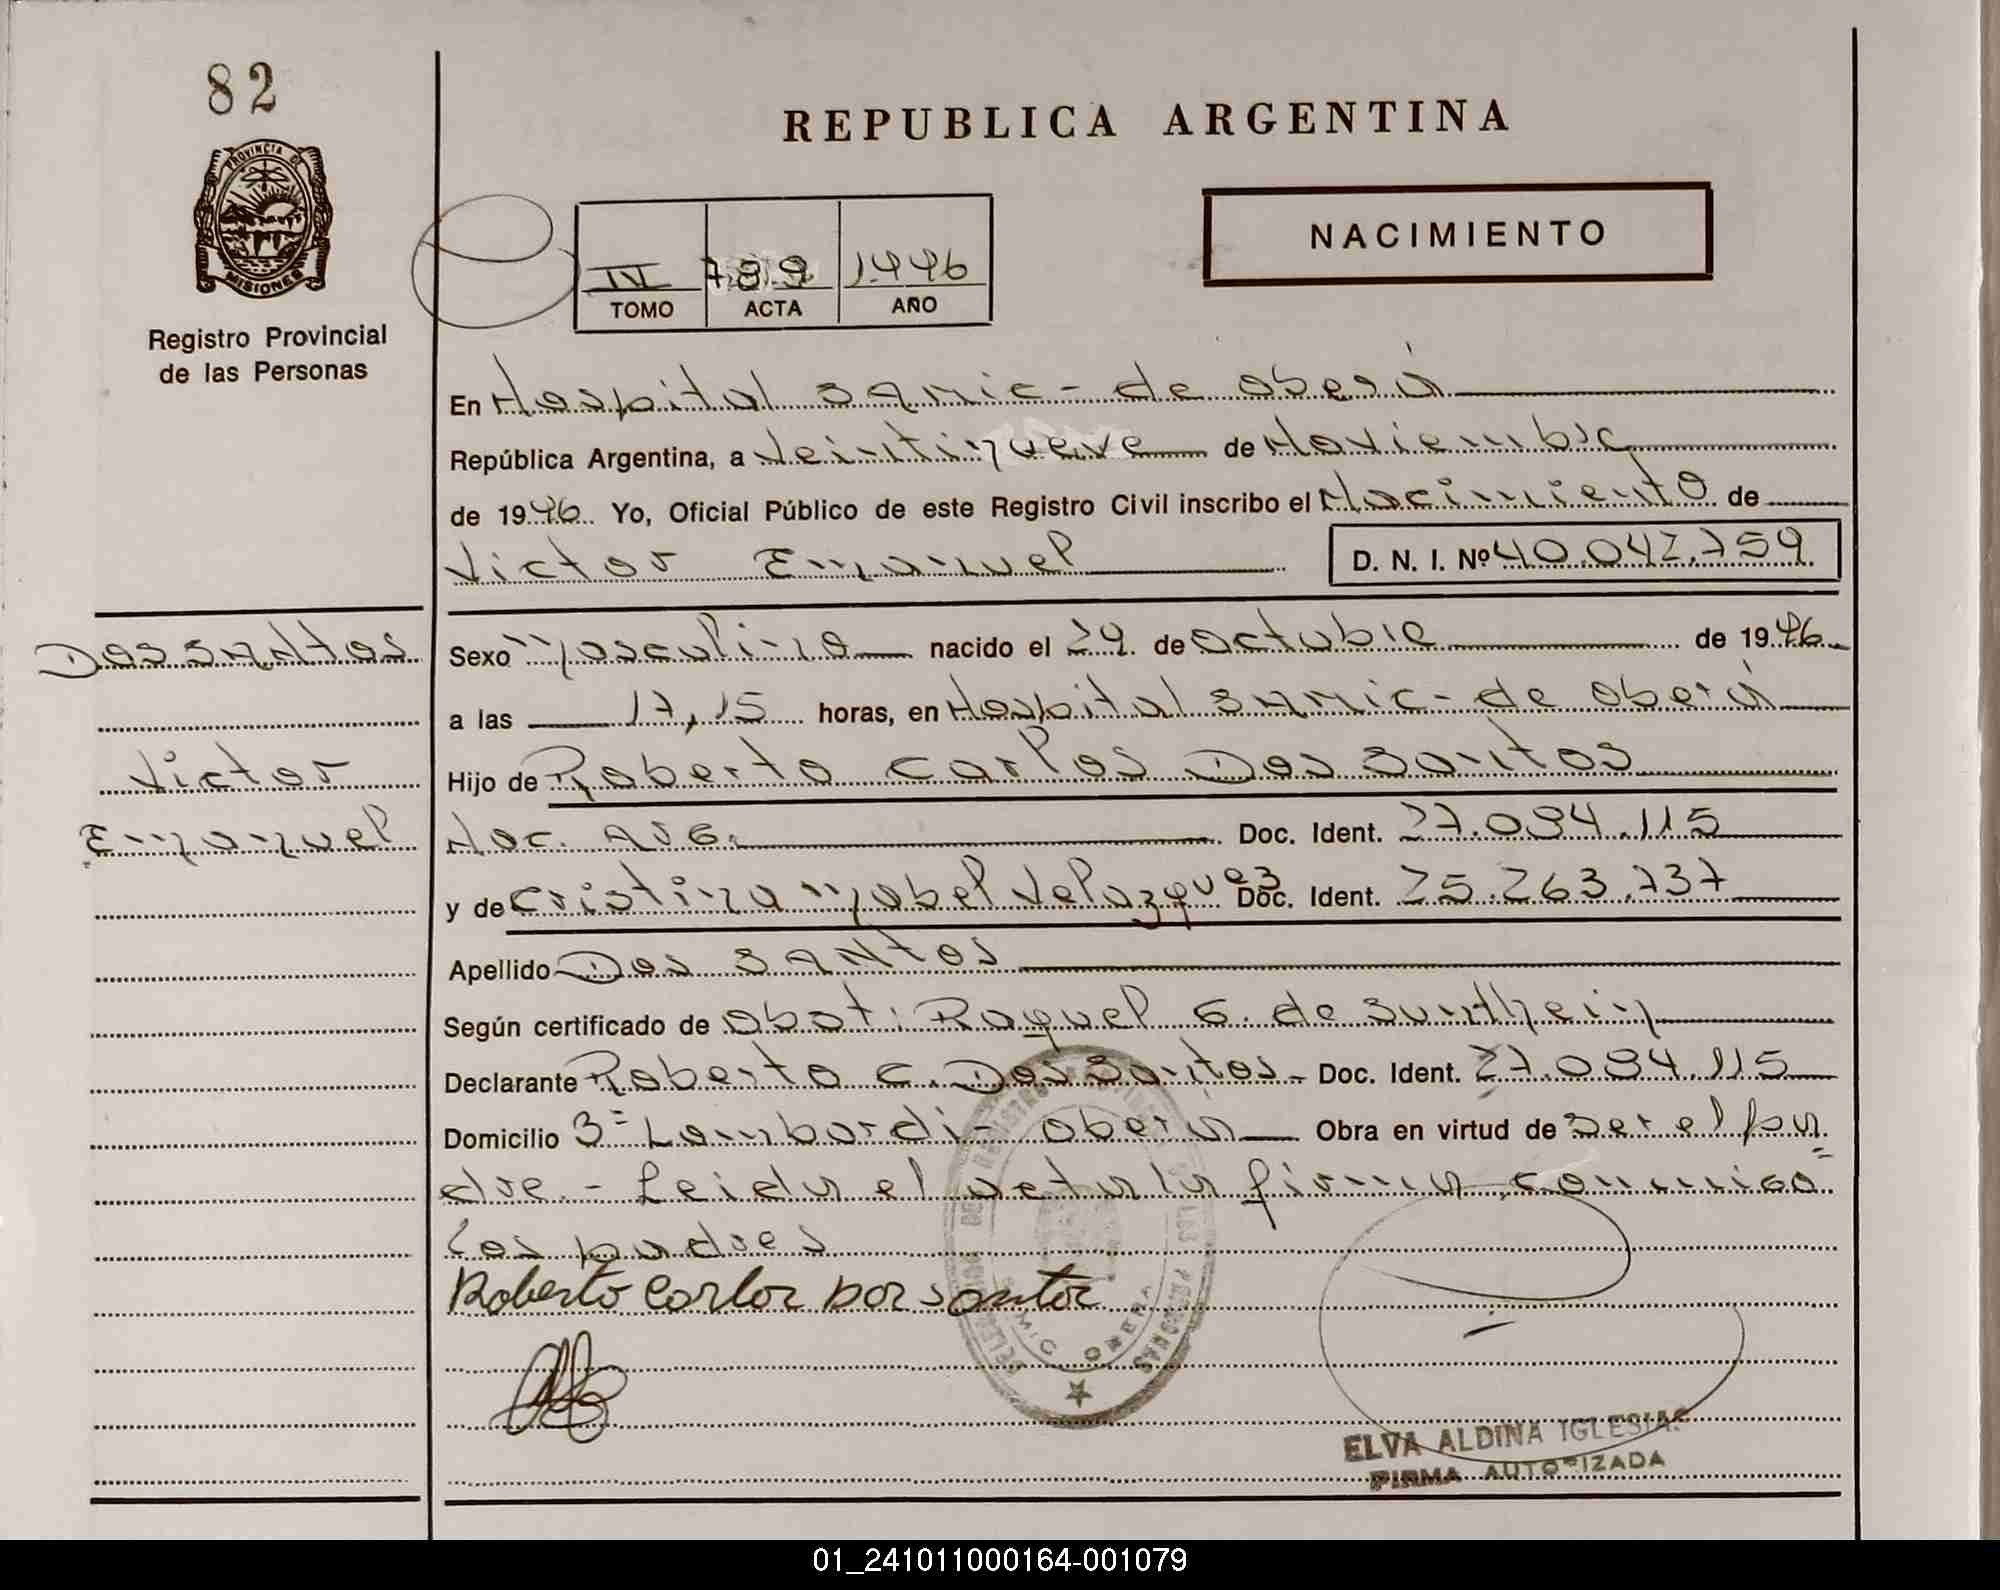 82
REPUBLICA ARGENTINA
PROVINCIA DE
MISIONES
Registro Provincial
de las Personas
NACIMIENTO
IV 789 1.996
TOMO ACTA AÑO
En Hospital SAMIC - de Oberá
República Argentina, a Veintinueve de Noviembre
de 1996. Yo, Oficial Público de este Registro Civil inscribo el Nacimiento de
Victor Emanuel D. N. I. Nº 40.042.759
Dos SANtos
Sexo Masculino nacido el 29. de Octubre de 1996.
a las 17,15 horas, en Hospital SAMIC - de Oberá
Victor
Hijo de Roberto Carlos Dos Santos
Emanuel
Nac. Arg. Doc. Ident. 27.094.115
y de Cristina Mabel Velazquez Doc. Ident. 25.263.737
Apellido Dos SANtos
Según certificado de Obst: Raquel G. de
Declarante Roberto C. Dos Santos - Doc. Ident. 27.094.115
Domicilio 3= Lombardi - Oberá Obra en virtud de ser el pa=
dre. - Leida el acta la firman conmigo
los padres
Roberto Carlos Dos Santos
DELEGACION DEL REGISTRO DE LAS PERSONAS
SAMIC OBERA
ELVA ALDINA IGLESIAS
FIRMA AUTORIZADA
01_241011000164-001079